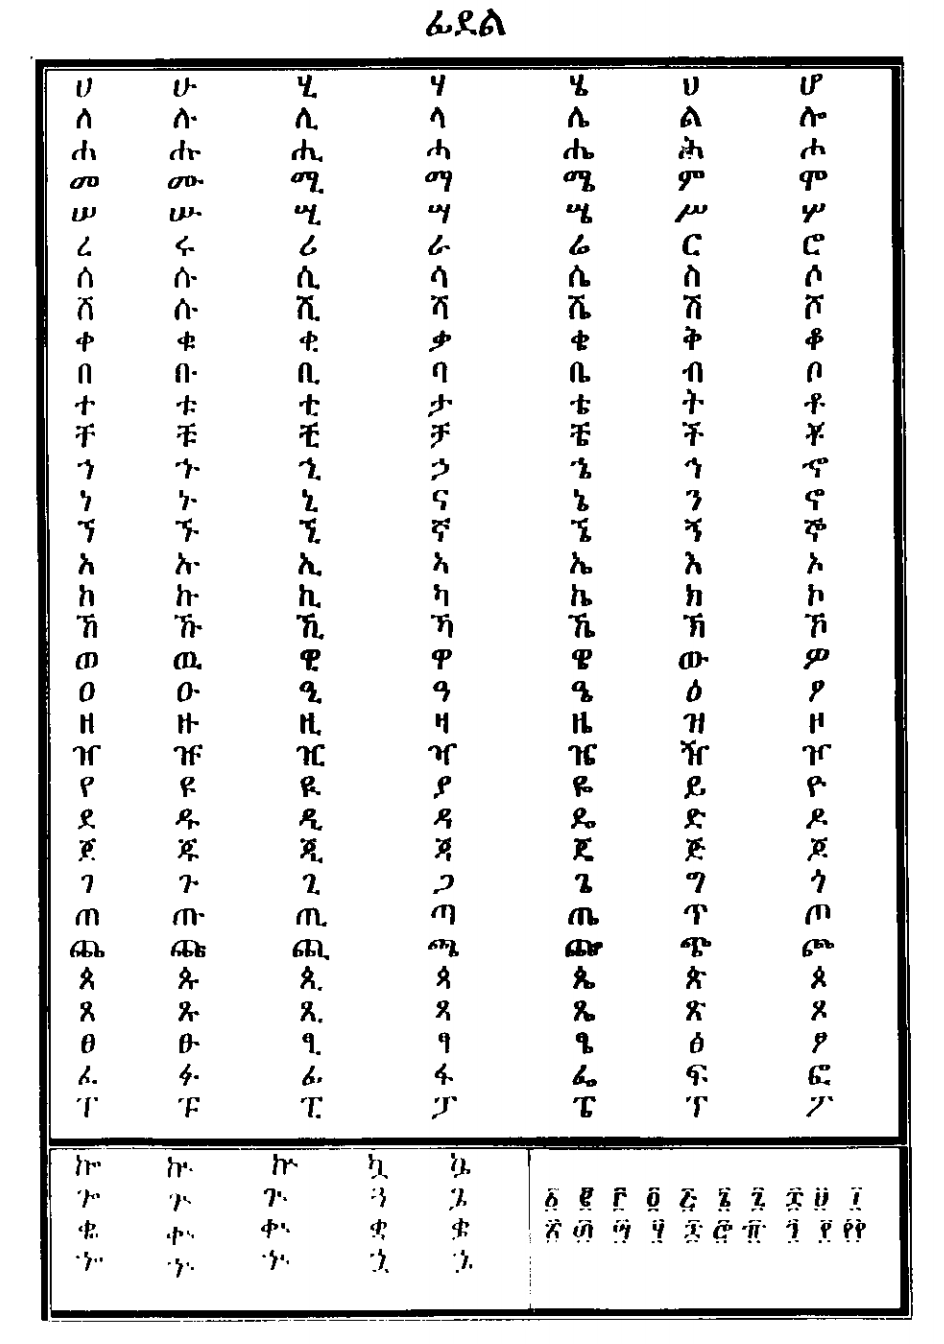 ፊደል
ሀ ሁ ሂ ሃ ሄ ህ ሆ
ለ ሉ ሊ ላ ሌ ል ሎ
ሐ ሑ ሒ ሓ ሔ ሕ ሖ
መ ሙ ሚ ማ ሜ ም ሞ
ሠ ሡ ሢ ሣ ሤ ሥ ሦ
ረ ሩ ሪ ራ ሬ ር ሮ
ሰ ሱ ሲ ሳ ሴ ስ ሶ
ሸ ሱ ሺ ሻ ሼ ሽ ሾ
ቀ ቁ ቂ ቃ ቄ ቅ ቆ
በ ቡ ቢ ባ ቤ ብ ቦ
ተ ቱ ቲ ታ ቴ ት ቶ
ቸ ቹ ቺ ቻ ቼ ች ቾ
ኀ ኁ ኂ ኃ ኄ ኅ ኆ
ነ ኑ ኒ ና ኔ ን ኖ
ኘ ኙ ኚ ኛ ኜ ኝ ኞ
አ ኡ ኢ ኣ ኤ እ ኦ
ከ ኩ ኪ ካ ኬ ክ ኮ
ኸ ኹ ኺ ኻ ኼ ኽ ኾ
ወ ዉ ዊ ዋ ዌ ው ዎ
ዐ ዑ ዒ ዓ ዔ ዕ ዖ
ዘ ዙ ዚ ዛ ዜ ዝ ዞ
ዠ ዡ ዢ ዣ ዤ ዥ ዦ
የ ዩ ዪ ያ ዬ ይ ዮ
ደ ዱ ዲ ዳ ዴ ድ ዶ
ጀ ጁ ጂ ጃ ጄ ጅ ጆ
ገ ጉ ጊ ጋ ጌ ግ ጎ
ጠ ጡ ጢ ጣ ጤ ጥ ጦ
ጨ ጩ ጪ ጫ ጬ ጭ ጮ
ጰ ጱ ጲ ጳ ጴ ጵ ጶ
ጸ ጹ ጺ ጻ ጼ ጽ ጾ
ፀ ፁ ፂ ፃ ፄ ፅ ፆ
ፈ ፉ ፊ ፋ ፌ ፍ ፎ
ፐ ፑ ፒ ፓ ፔ ፕ ፖ
ኰ ኲ ኵ ኳ ኴ
ጐ ጒ ጕ ጓ ጔ
ቈ ቊ ቍ ቋ ቌ
ኈ ኊ ኍ ኋ ኌ
፩ ፪ ፫ ፬ ፭ ፮ ፯ ፰ ፱ ፲
፳ ፴ ፵ ፶ ፷ ፸ ፹ ፺ ፻ ፼